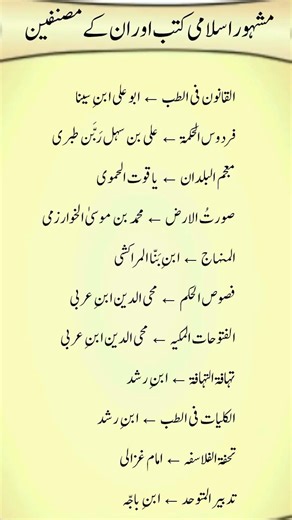 مشہور اسلامی کتب اور ان کے مصنفین
القانون فی الطب ← ابو علی ابنِ سینا
فردوس الحکمۃ ← علی بن سہل رَبَّن طبری
معجم البلدان ← یاقوت الحموی
صورتُ الارض ← محمد بن موسیٰ الخوارزمی
المنہاج ← ابنِ بنّا المراکشی
فصوص الحکم ← محی الدین ابنِ عربی
الفتوحات المکیہ ← محی الدین ابنِ عربی
تہافۃ التہافۃ ← ابنِ رشد
الکلیات فی الطب ← ابنِ رشد
تحفۃ الفلاسفہ ← امام غزالی
تدبیر المتوحد ← ابنِ باجّہ